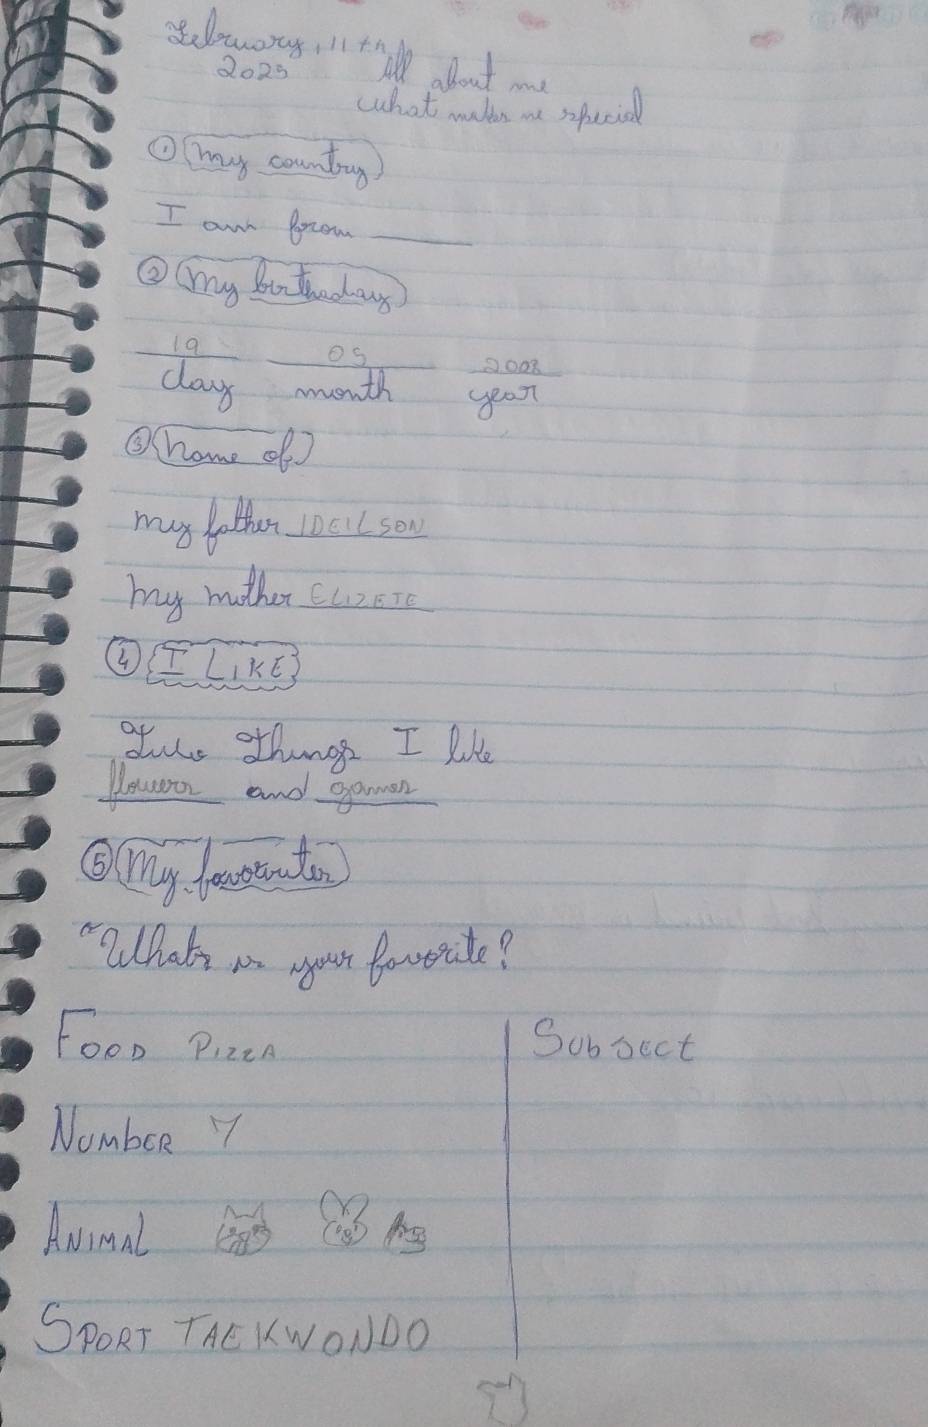 February, 11th
2025 All about me
what makes me special
① My country
I am from ______
② My birthaday
19 05 2008
day month year
③ Name of
my father IDEILSON
my mother ELIZETE
④ I LIKE
Two Things I like
flowers and games
⑤ My favorites
"What's is your favorite?
FOOD PIZZA
Subject
NUMBER 7
ANIMAL
SPORT TAEKWONDO